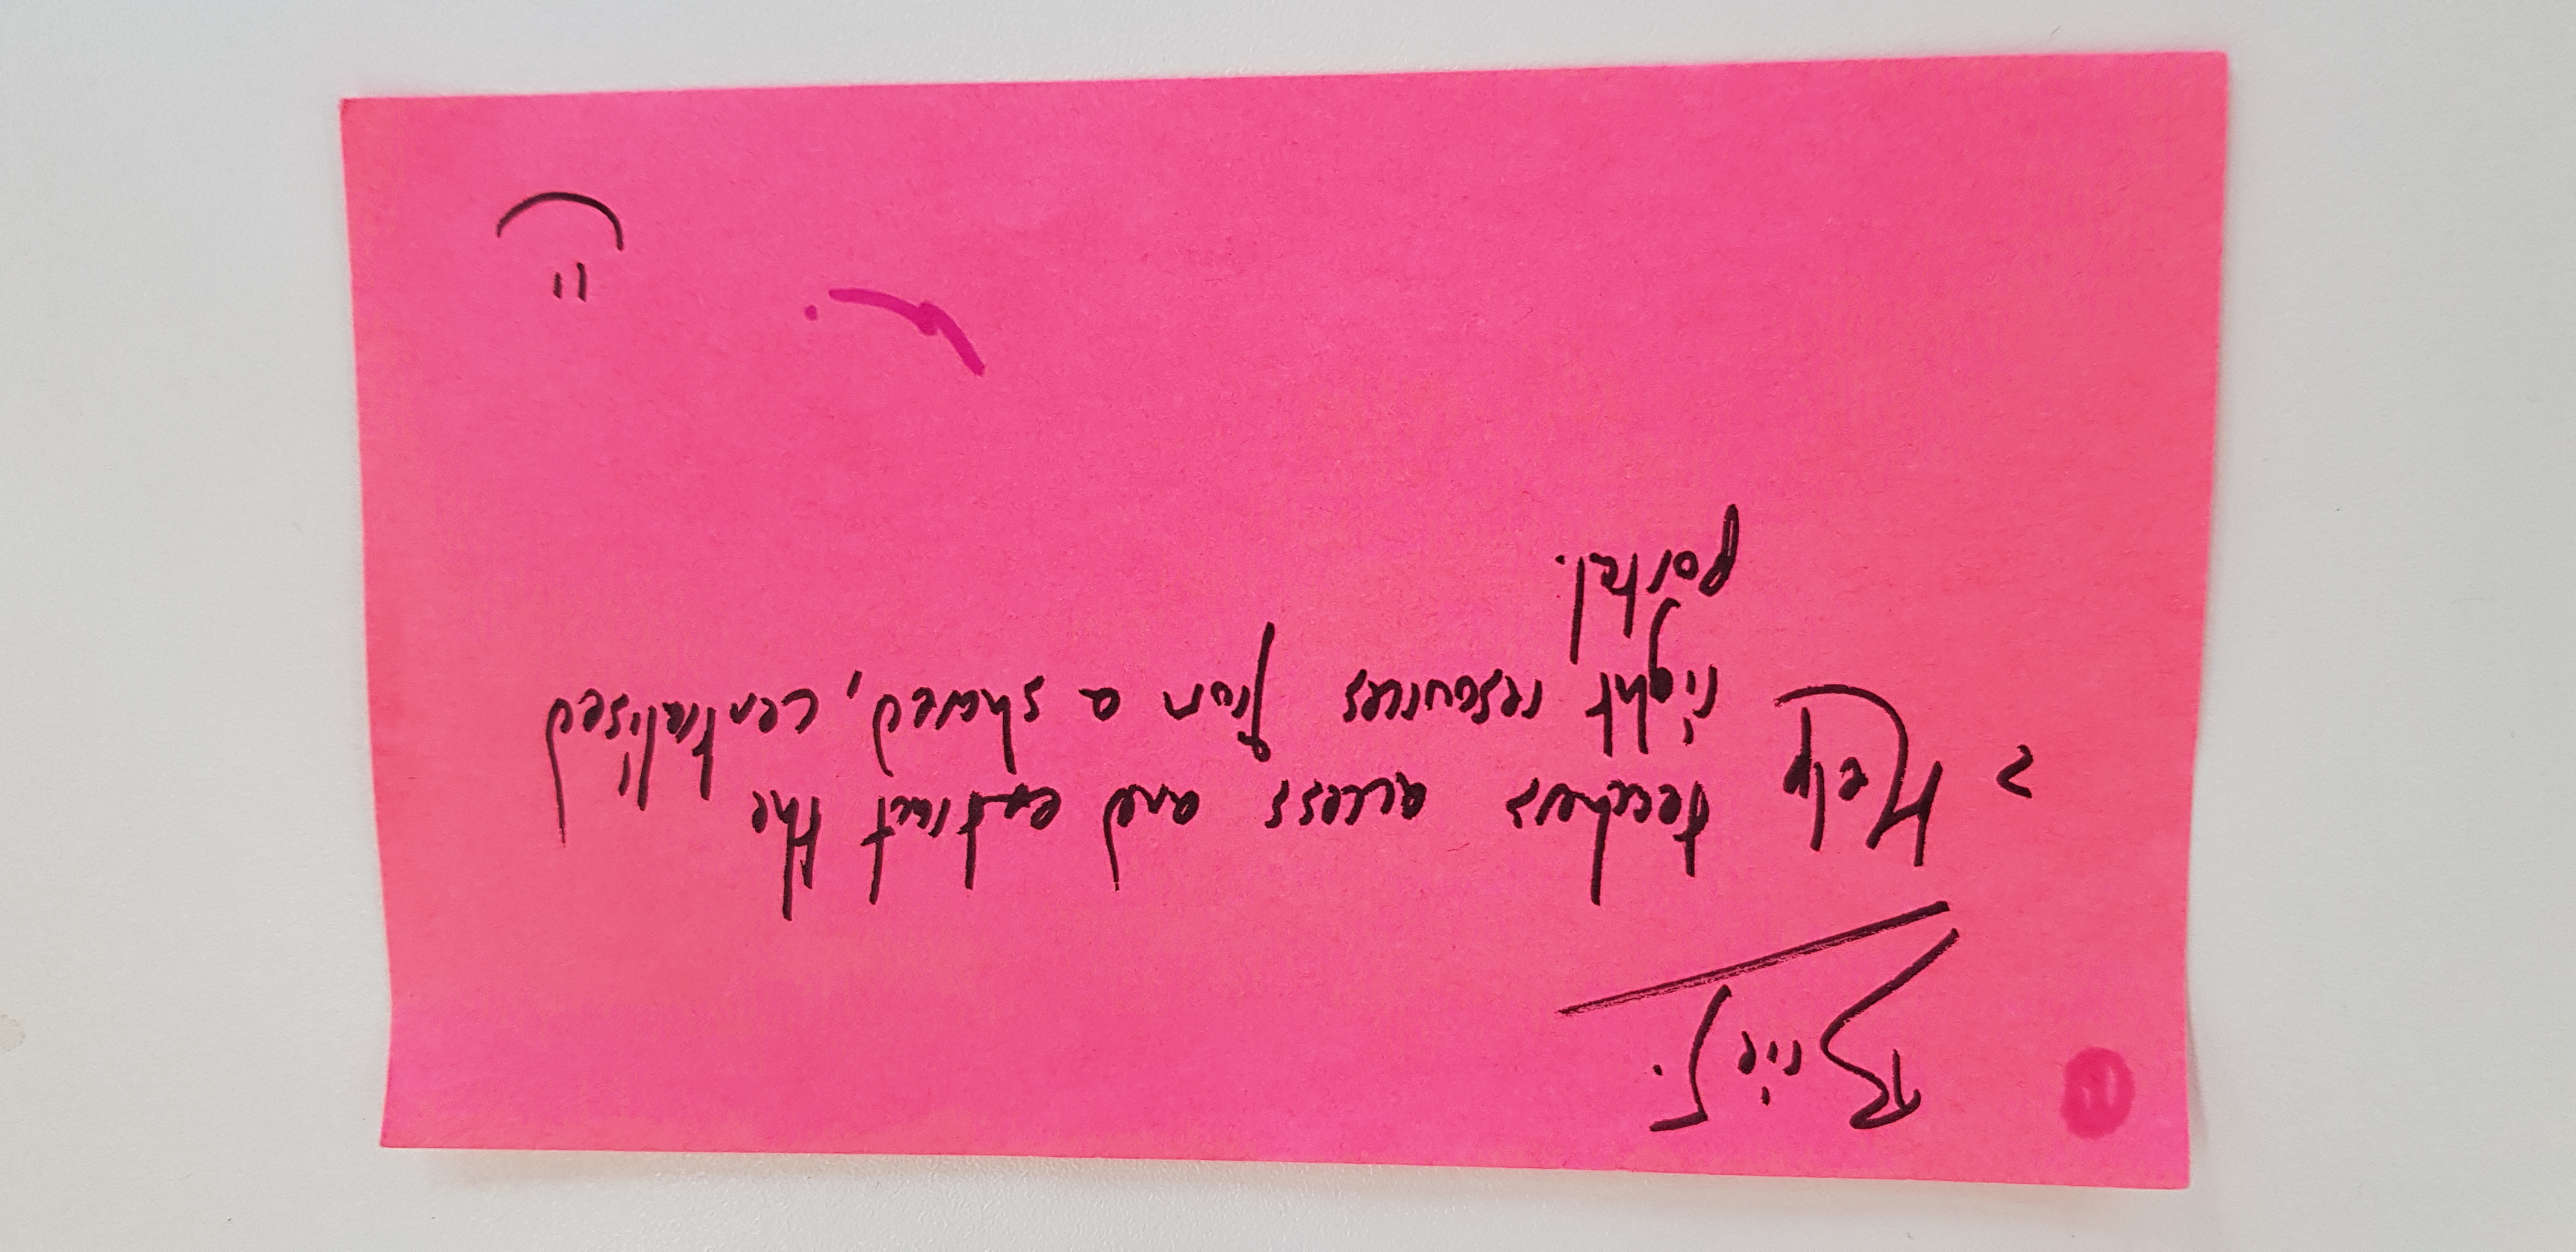 Brief.
> Help teachers access and extract the
right resources from a shared, centralised
portal.